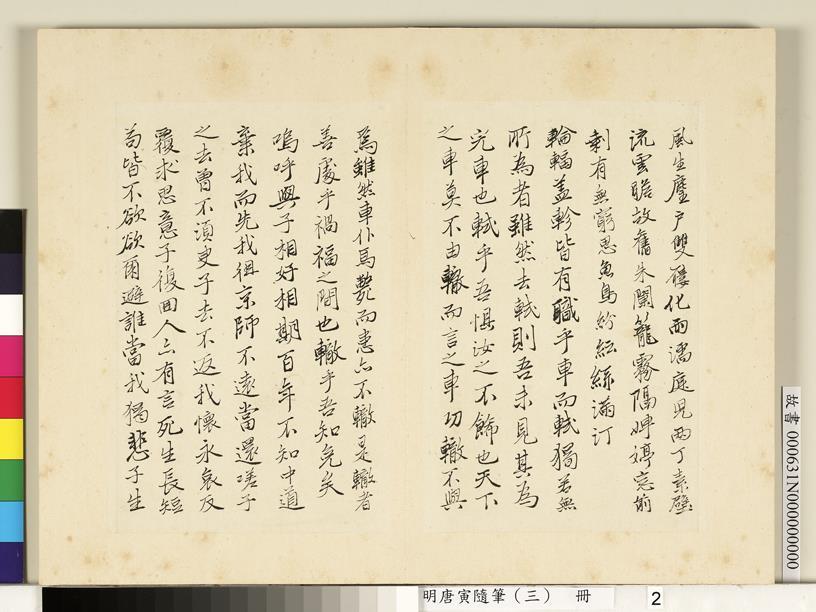 風生塵戶雙履化雨濡庭兒兩丁素壁
流雲瞻故舊朱闌籠霧隔娉婷窓前
剩有無窮思魚鳥紛紜綠滿汀
輪輻蓋軫皆有職乎車而軾獨若無
所為者雖然去軾則吾未見其為
完車也軾乎吾懼汝之不飾也天下
之車莫不由轍而言之車功轍不與
焉雖然車仆馬斃而患亦不轍是轍者
善處乎禍福之間也轍乎吾知免矣
嗚呼與子相好相期百年不知中道
棄我而先我徂京師不遠當還嗟子
之去曾不須臾子去不返我懷永哀反
覆求思意子復回人亦有言死生長短
苟皆不欲欲爾避誰當我獨悲子生
故書 000631N000000000
明唐寅隨筆（三） 冊
2